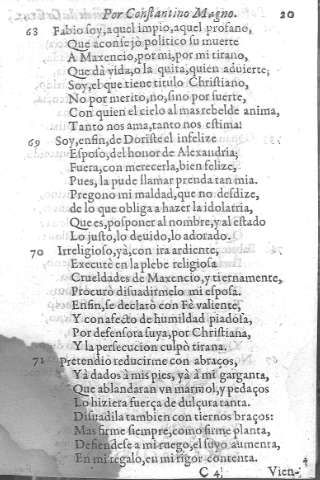 Por Constantino Magno. 20
63 Fabio soy, aquel impio, aquel profano,
Que aconsejò politico su muerte
A Maxencio, por mi, por mi tirano,
Que dà vida, o la quita, quien aduierte;
Soy, el que tiene titulo Christiano,
No por merito, no, sino por suerte,
Con quien el cielo al mas rebelde anima,
Tanto nos ama, tanto nos estima:
69 Soy, enfin, de Doriste el infelize
Esposo, del honor de Alexandria;
Fuera, con merecerla, bien felize,
Pues, la pude llamar prenda tan mia.
Pregono mi maldad, que no desdize,
de lo que obliga a hazer la idolatria,
Que es, posponer al nombre, y al estado
Lo justo, lo deuido, lo adorado.
70 Irreligioso, yà, con ira ardiente,
Executè en la plebe religiosa
Crueldades de Maxencio, y tiernamente,
Procurò disuadirmelo mi esposa.
Enfin, se declarò con Fè valiente,
Y con afecto de humildad piadosa,
Por defensora suya, por Christiana,
Y la persecucion culpò tirana.
71 Pretendiò reducirme con abraços,
Yà dados à mis pies, yà à mi garganta,
Que ablandaran vn marmol, y pedaços
Lo hiziera fuerça de dulçura tanta.
Disuadila tambien con tiernos braços:
Mas firme siempre, como firme planta,
Defiendese a mi ruego, el suyo aumenta,
En mi regalo, en mi rigor contenta.
C 4 Vien-